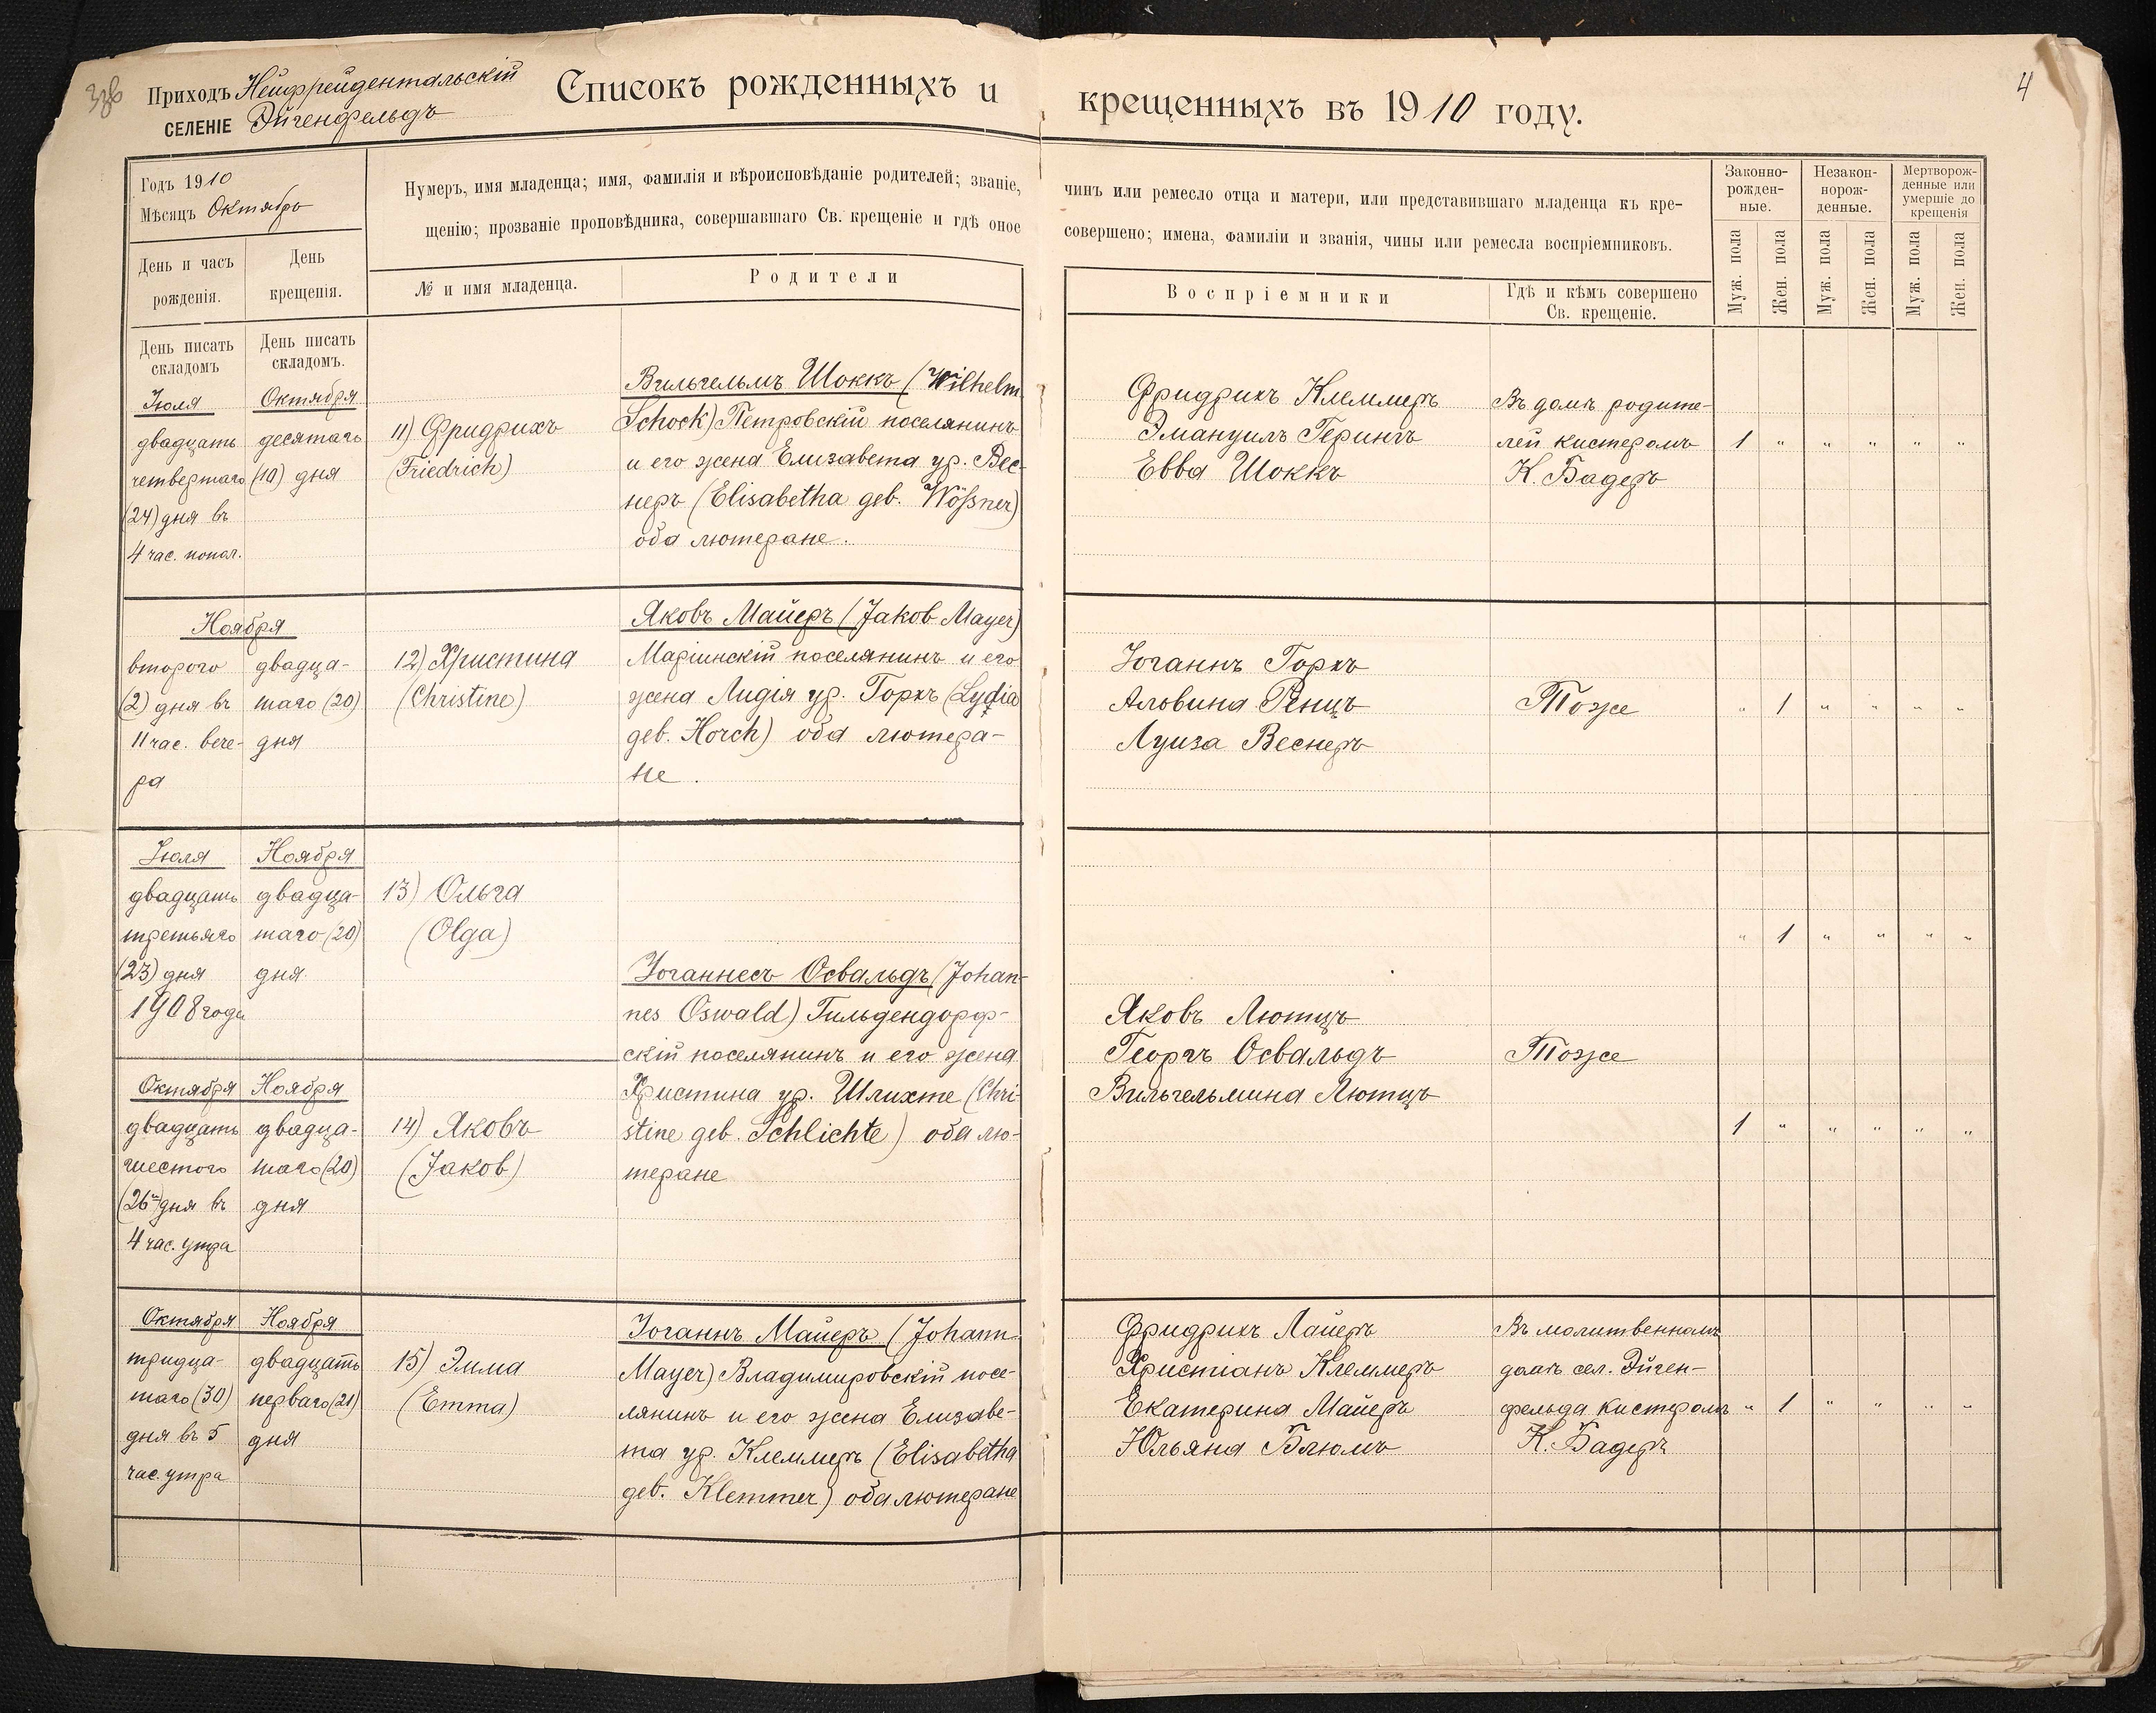 Приходъ Нейфрейдентальскій
СЕЛЕНІЕ Эйгенфельдъ
Списокъ рожденныхъ и крещенныхъ въ 1910 году.
4
Годъ 1910
Мѣсяцъ Октябрь
Нумеръ, имя младенца; имя, фамилія и вѣроисповѣданіе родителей; званіе, чинъ или ремесло отца и матери, или представившаго младенца къ кре-
щенію; прозваніе проповѣдника, совершавшаго Св. крещеніе и гдѣ оное совершено; имена, фамиліи и званія, чины или ремесла воспріемниковъ.
Законно-
рожден-
ные.
Незакон-
норож-
денные.
Мертворож-
денные или
умершіе до
крещенія
День и часъ
рожденія.
День
крещенія.
№ и имя младенца.
Родители
Воспріемники
Гдѣ и кѣмъ совершено
Св. крещеніе.
Муж. пола
Жен. пола
Муж. пола
Жен. пола
Муж. пола
Жен. пола
День писать
складомъ
День писать
складомъ.
Іюля
двадцать
четвертаго
(24) дня въ
4 час. попол.
Октября
десятаго
(10) дня
11) Фридрихъ
(Friedrich)
Вильгельмъ Шоккъ (Wilhelm
Schock) Петровскій поселянинъ
и его жена Елизавета ур. Вес-
неръ (Elisabetha geb. Wößner)
оба лютеране.
Фридрихъ Клеммеръ
Эмануилъ Герингъ
Евва Шоккъ
Въ домѣ родите-
лей кистеромъ
К. Бадеръ
1 " " " " "
Ноября
второго
(2) дня въ
11 час. вече-
ра
двадца-
таго (20)
дня
12) Христина
(Christine)
Яковъ Майеръ (Jakob Mayer)
Маріинскій поселянинъ и его
жена Лидія ур. Горхъ (Lydia
geb. Horch) оба лютера-
не.
Іоганнъ Горхъ
Альвина Ренцъ
Луиза Веснеръ
Тоже
" 1 " " " "
Іюля
двадцать
третьяго
(23) дня
1908 года
Ноября
двадца-
таго (20)
дня
13) Ольга
(Olga)
" 1 " " " "
Іоганнесъ Освальдъ (Johan-
nes Oswald) Гильдендорф-
скій поселянинъ и его жена
Христина ур. Шлихте (Chri-
stine geb. Schlichte) оба лю-
теране
Яковъ Лютцъ
Георгъ Освальдъ
Вильгельмина Лютцъ
Тоже
Октября
двадцать
шестого
(26) дня въ
4 час. утра
Ноября
двадца-
таго (20)
дня
14) Яковъ
(Jakob)
1 " " " " "
Октября
тридца-
таго (30)
дня въ 5
час. утра
Ноября
двадцать
перваго (21)
дня
15) Эмма
(Emma)
Іоганнъ Майеръ (Johann
Mayer) Владимировскій посе-
лянинъ и его жена Елизаве-
та ур. Клеммеръ (Elisabetha
geb. Klemmer) оба лютеране
Фридрихъ Майеръ
Христіанъ Клеммеръ
Екатерина Майеръ
Юльяна Блюмъ
Въ молитвенномъ
домѣ сел. Эйген-
фельда кистеромъ
К. Бадеръ
" 1 " " " "